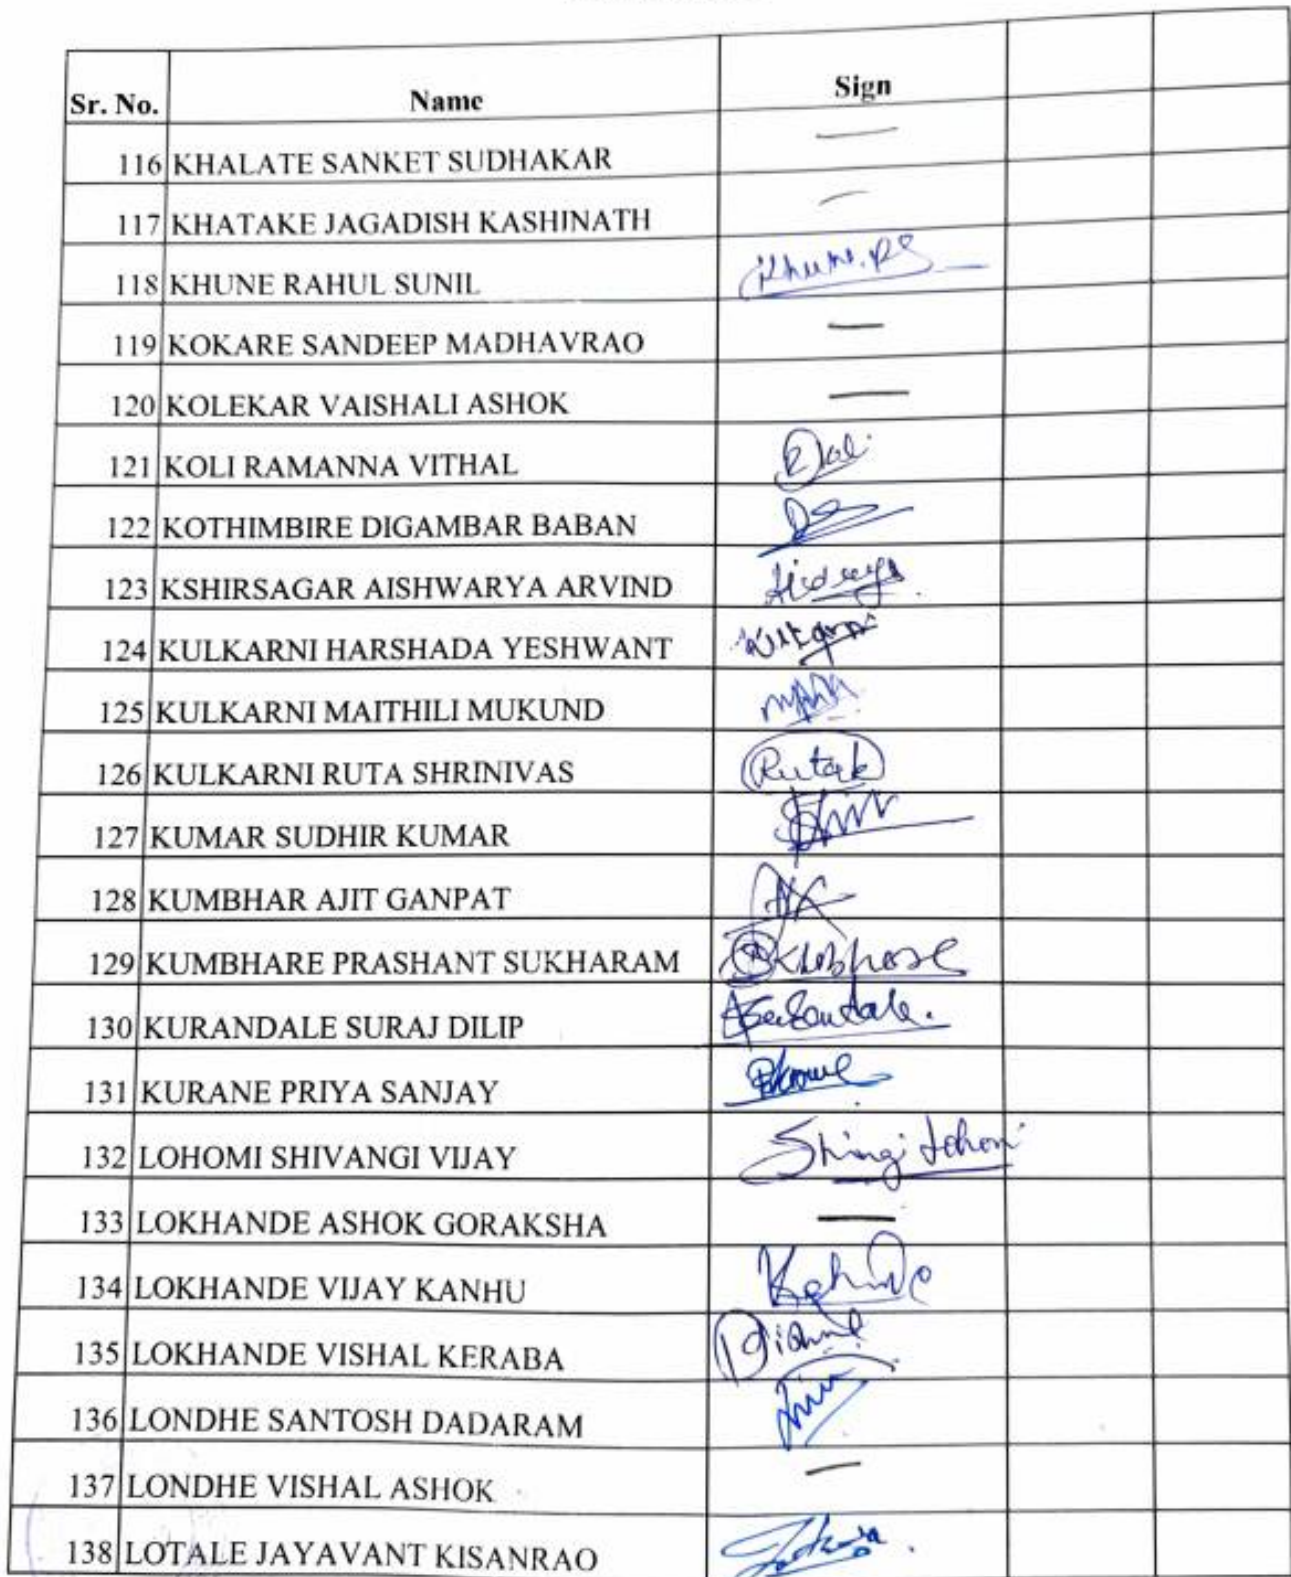 Sr. No. Name Sign
116 KHALATE SANKET SUDHAKAR —
117 KHATAKE JAGADISH KASHINATH —
118 KHUNE RAHUL SUNIL
119 KOKARE SANDEEP MADHAVRAO —
120 KOLEKAR VAISHALI ASHOK —
121 KOLI RAMANNA VITHAL
122 KOTHIMBIRE DIGAMBAR BABAN
123 KSHIRSAGAR AISHWARYA ARVIND
124 KULKARNI HARSHADA YESHWANT
125 KULKARNI MAITHILI MUKUND
126 KULKARNI RUTA SHRINIVAS Rutak
127 KUMAR SUDHIR KUMAR
128 KUMBHAR AJIT GANPAT
129 KUMBHARE PRASHANT SUKHARAM
130 KURANDALE SURAJ DILIP
131 KURANE PRIYA SANJAY
132 LOHOMI SHIVANGI VIJAY
133 LOKHANDE ASHOK GORAKSHA —
134 LOKHANDE VIJAY KANHU
135 LOKHANDE VISHAL KERABA
136 LONDHE SANTOSH DADARAM
137 LONDHE VISHAL ASHOK —
138 LOTALE JAYAVANT KISANRAO